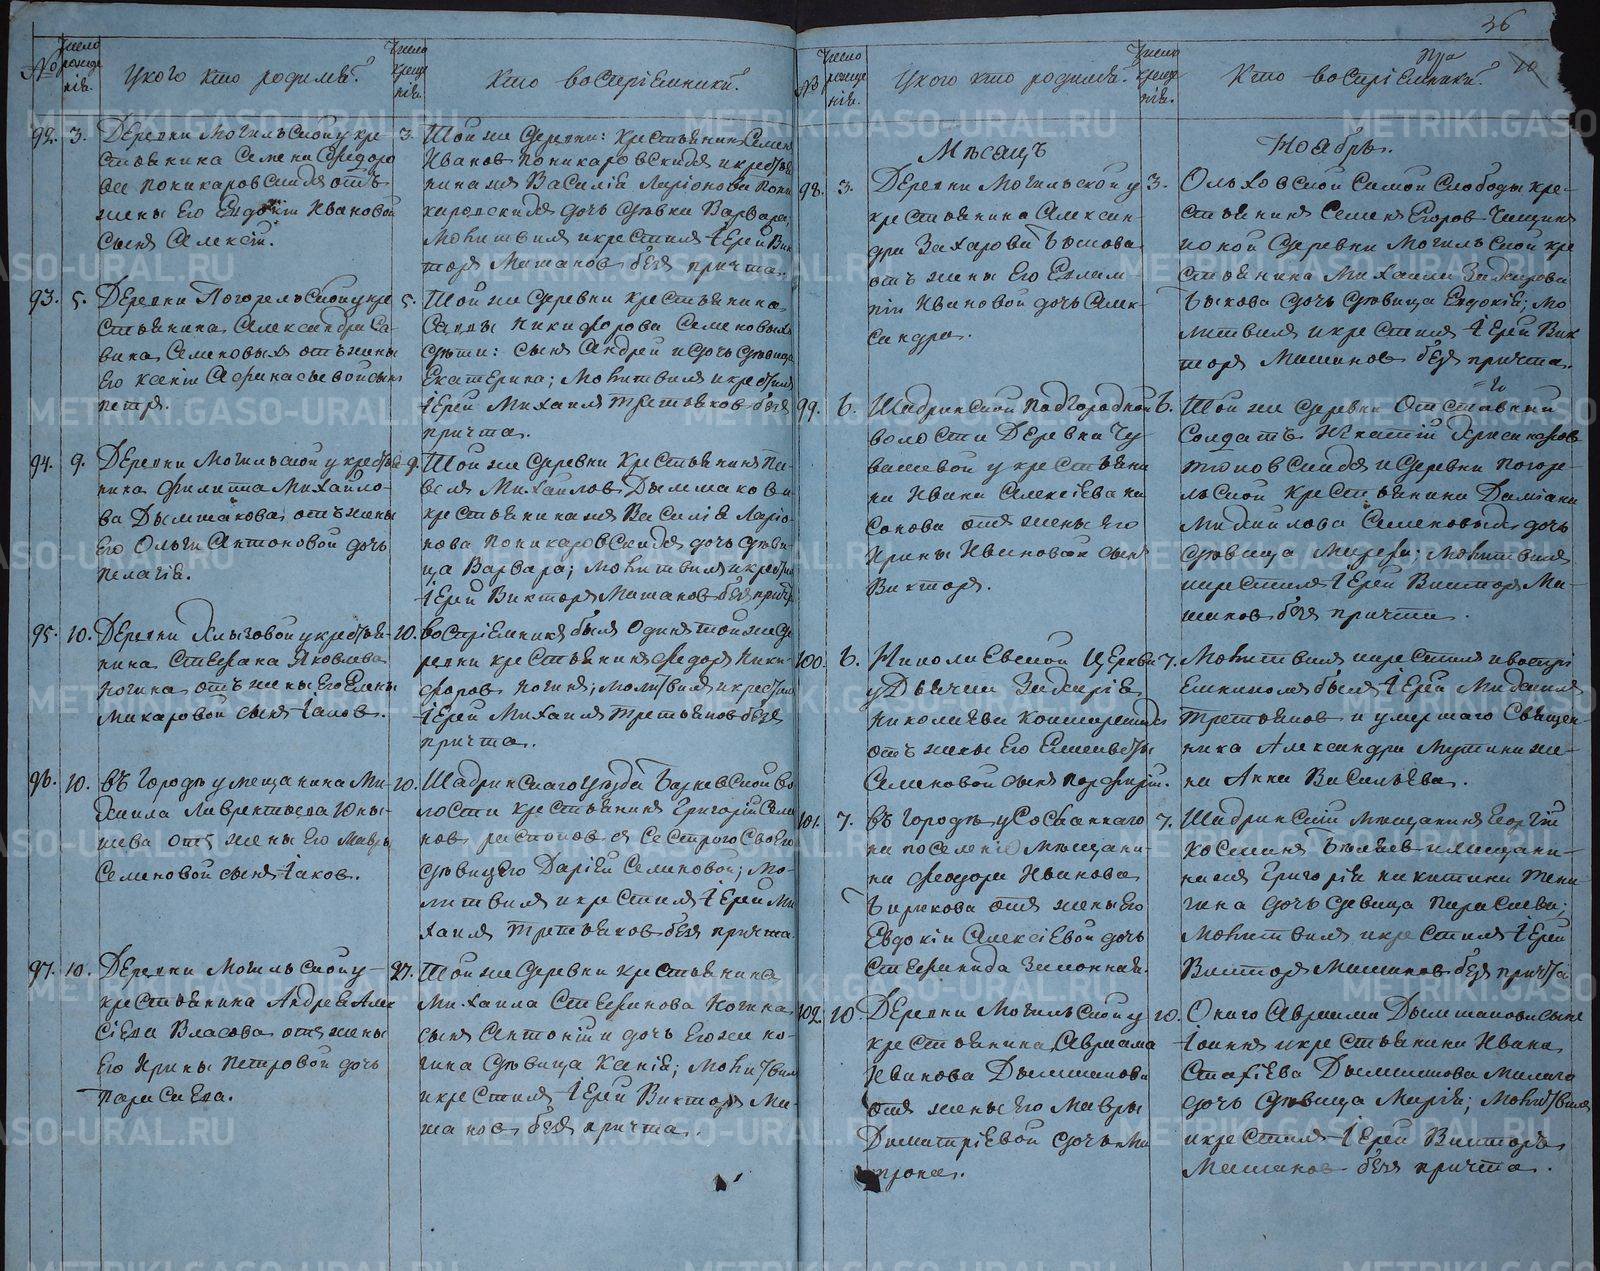 36
10
№
Число рожде нія.
У кого кто родился?
Число креще нія.
Кто воспріемники?
92. 3. Деревни Могильской у кре-
стьянина Семена Федоро
ва Поникаровскихъ отъ
жены его Евдокіи Ивановой
сынъ Алексій.
3. Той же деревни: крестьянинъ Семенъ
Ивановъ Поникаровскихъ и крестья
нина же Василія Ларіонова Пони
каровскихъ дочь дѣвка Варвара;
Молитвилъ и крестилъ Іерей Вик
торъ Машановъ безъ причта.
93. 5. Деревни Погорельской у кре
стьянина Александра Са-
вина Семеновыхъ отъ жены
его Ксеніи Афанасьевой сынъ
Петръ.
5. Той же деревни крестьянина
Саввы Никифорова Семеновыхъ
дѣти: сынъ Андрей и дочь дѣвица
Екатерина; Молитвилъ и крестилъ
Іерей Михаилъ Третьяковъ безъ
причта.
94. 9. Деревни Могильской у крестья
нина Филиппа Михайло-
ва Дымшакова, отъ жены
его Ольги Антоновой дочь
Пелагія.
9. Той же деревни крестьянинъ Па-
велъ Михайловъ Дымшаковъ и
крестьянина же Василія Ларіо-
нова Поникаровскихъ дочь дѣви-
ца Варвара; Молитвилъ и крестилъ
Іерей Викторъ Машановъ безъ причта
95. 10. Деревни Хлызовой у крестья-
нина Стефана Яковлева
Ногина отъ жены его Елены
Макаровой сынъ Іаковъ.
10. воспріемникъ былъ одинъ той же де
ревни крестьянинъ Федоръ Ники-
форовъ Ногинъ; молитвилъ и крестилъ
Іерей Михаилъ Третьяковъ безъ
причта.
96. 10. Въ городѣ у мещанина Ми-
хаила Лаврентьева
отъ жены его Мавры
Семеновой сынъ Іаковъ.
10. Шадринскаго уѣзда Барневской во
лости крестьянинъ Григорій Семе
новъ Распоповъ съ сестрою своею
дѣвицею Даріей Семеновой; Мо-
литвилъ и крестилъ Іерей Ми
хаилъ Третьяковъ безъ причта.
97. 10. Деревни Могильской у
крестьянина Андрея Алек
сіева Власова отъ жены
его Ирины Петровой дочь
Параскева.
27. Той же деревни крестьянина
Михаила Стефанова Ногина
сынъ Антоній и дочь его же Но-
гина дѣвица Ксенія; Молитвилъ
и крестилъ Іерей Викторъ Ма-
шановъ безъ причта.
№
Число рожде нія.
У кого кто родился?
Число креще нія.
Кто воспріемники?
Мѣсяцъ Ноябрь.
98. 3. Деревни Могильской у
крестьянина Алексан-
дра Захарова Быкова
отъ жены его Евлам-
піи Ивановой дочь Алек-
сандра.
3. Ольховской самой слободы кре-
стьянинъ Семенъ Егоровъ
и оной деревни Могильской кре
стьянина Михаила Захарова
Быкова дочь дѣвица Евдокія; Мо
литвилъ и крестилъ Іерей Вик
торъ Машановъ безъ причта.
99. 6. Шадринской Подгородной
волости деревни Чу-
вашевой у крестьяни
на Ивана Алексіева
отъ жены его
Ирины Ивановой сынъ
Викторъ.
6. Той же деревни отставный
солдатъ Игнатій
и деревни Погоре-
льской крестьянина Даміана
Михайлова Семеновыхъ дочь
дѣвица Марфа; Молитвилъ
и крестилъ Іерей Викторъ Ма-
шановъ безъ причта.
100. 6. Николаевской церкви
у Дьячка Захарія
Николаева
отъ жены его Елисаветы
Семеновой сынъ Порфирій.
7. Молитвилъ и крестилъ и воспрі
емникомъ былъ Іерей Михаилъ
Третьяковъ и умершаго священ-
ника Александра Мутина же-
на Анна Васильева.
101. 7. Въ городѣ у сосланнаго
на поселеніе мѣщани-
на Феодора Иванова
Бирюкова отъ жены его
Евдокіи Алексіевой дочь
Стефанида законная.
7. Шадринскій мѣщанинъ Георгій
Косминъ Бѣляевъ и мѣщани-
на же Григорія Никитина
дочь дѣвица Параскева;
Молитвилъ и крестилъ Іерей
Викторъ Машановъ безъ причта
102. 10 Деревни Могильской у
крестьянина Авраама
Иванова Дымшакова
отъ жены его Мавры
Димитріевой дочь Ма
трона.
10. Онаго Авраама Дымшакова сынъ
Іоаннъ и крестьянина Ивана
Дымшакова
дочь дѣвица Марія; Молитвилъ
и крестилъ Іерей Викторъ
Машановъ безъ причта.
METRIKI.GASO-URAL.RU